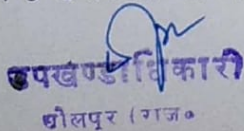 उपखण्डाधिकारी
धौलपुर (राज०